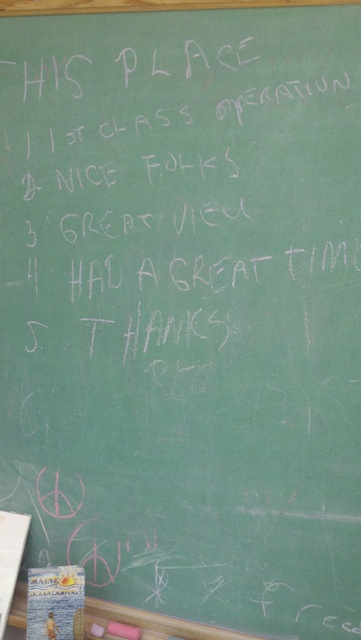 THIS PLACE
1 1ST CLASS OPERATION
2 NICE FOLKS
3 GREAT VIEW
4 HAD A GREAT TIME
5. THANKS
MAINE
OCEAN CAMPING